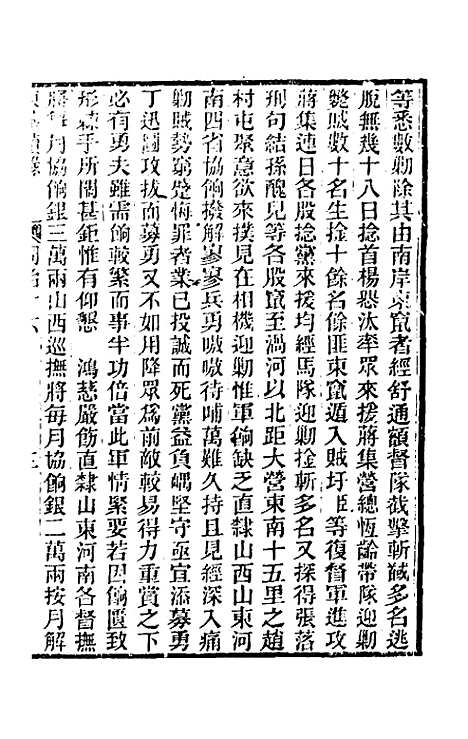 等悉數勦除其由南岸東竄者經舒通額督隊截擊斬馘多名逃
脫無幾十八日捻首楊懸汰率眾來援蔣集營總恆齡帶隊迎勦
斃賊數十名生捡十餘名餘匪東竄遁入賊圩姬等復督軍進攻
蔣集連日各股捻黨來援均經馬隊迎勦捡斬多名又探得張落
刑句結孫醜兒等各股竄至渦河以北距大營東南十五里之趙
村屯聚意欲來撲見在相機迎勦惟軍餉缺乏直隸山西山東河
南四省協餉撥解寥寥兵勇嗷嗷待哺萬難久持且見經深入痛
勦賊勢窮蹙悔罪者業已投誠而死黨益負嵎堅守亟宜添募勇
丁迅圖攻拔而募勇又不如用降眾爲前敵較易得力重賞之下
必有勇夫雖需餉較繁而事半功倍當此軍情緊要若因餉匱致
形棘手所關甚鉅惟有仰懇 鴻慈嚴飭直隸山東河南各督撫
將每月協餉銀三萬兩山西巡撫將每月協餉銀二萬兩按月解